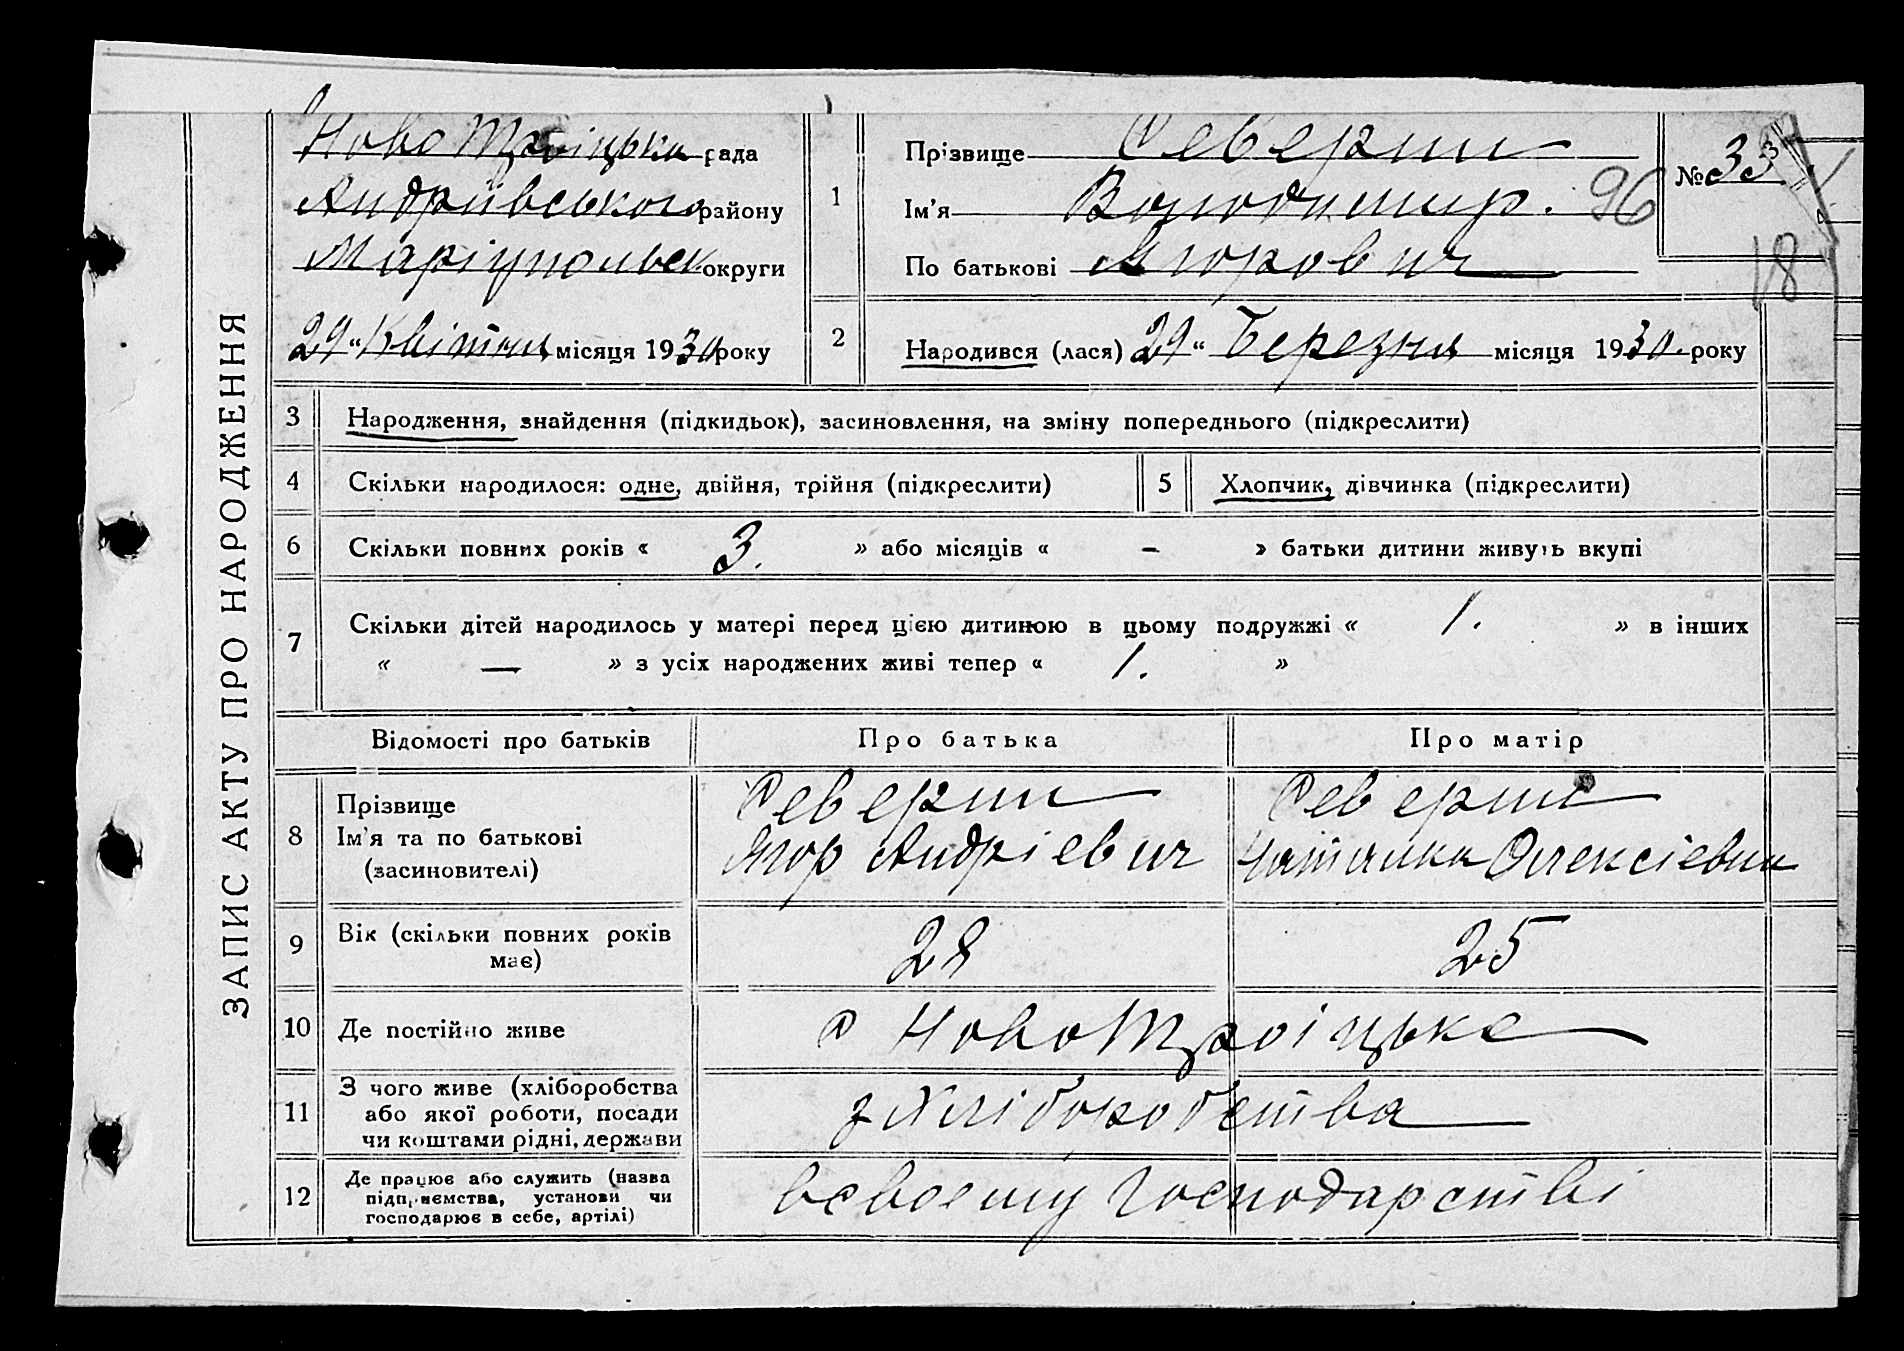 ЗАПИС АКТУ ПРО НАРОДЖЕННЯ
Ново Троіцька рада
Андріївського району
Маріупольськ округи
29 " Квітня місяця 1930 року
1
Прізвище Северин
Ім'я Володимир.
По батькові Ягорович
№ 33
96
18
2
Народився (лася) 29 " Березня місяця 1930 року
3 Народження, знайдення (підкидьок), засиновлення, на зміну попереднього (підкреслити)
4 Скільки народилося: одне, двійня, трійня (підкреслити)
5 Хлопчик, дівчинка (підкреслити)
6 Скільки повних років « 3. » або місяців « - » батьки дитини живуть вкупі
7 Скільки дітей народилось у матері перед цією дитиною в цьому подружжі « 1. » в інших
« — » з усіх народжених живі тепер « 1. »
Відомості про батьків Про батька Про матір
8 Прізвище
Ім'я та по батькові
(засиновителі)
Северин
Ягор Андрієвич
Северин
Наталка Олексієвна
9 Вік (скільки повних років
має)
28 25
10 Де постійно живе с НовоТроіцьке
11 З чого живе (хліборобства
або якої роботи, посади
чи коштами рідні, держави
з Хліборобства
12 Де працює або служить (назва
підприємства, установи чи
господарює в себе, артілі)
всвоєму господарстві